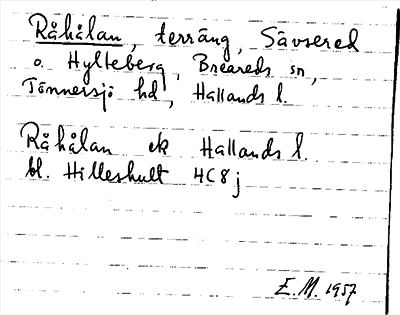 Råhålan, terräng, Sävsered
o. Hylteberg, Breareds sn,
Tönnersjö hd, Hallands l.
Råhålan ek Hallands l.
bl. Hilleshult 4C8j
E.M. 1957